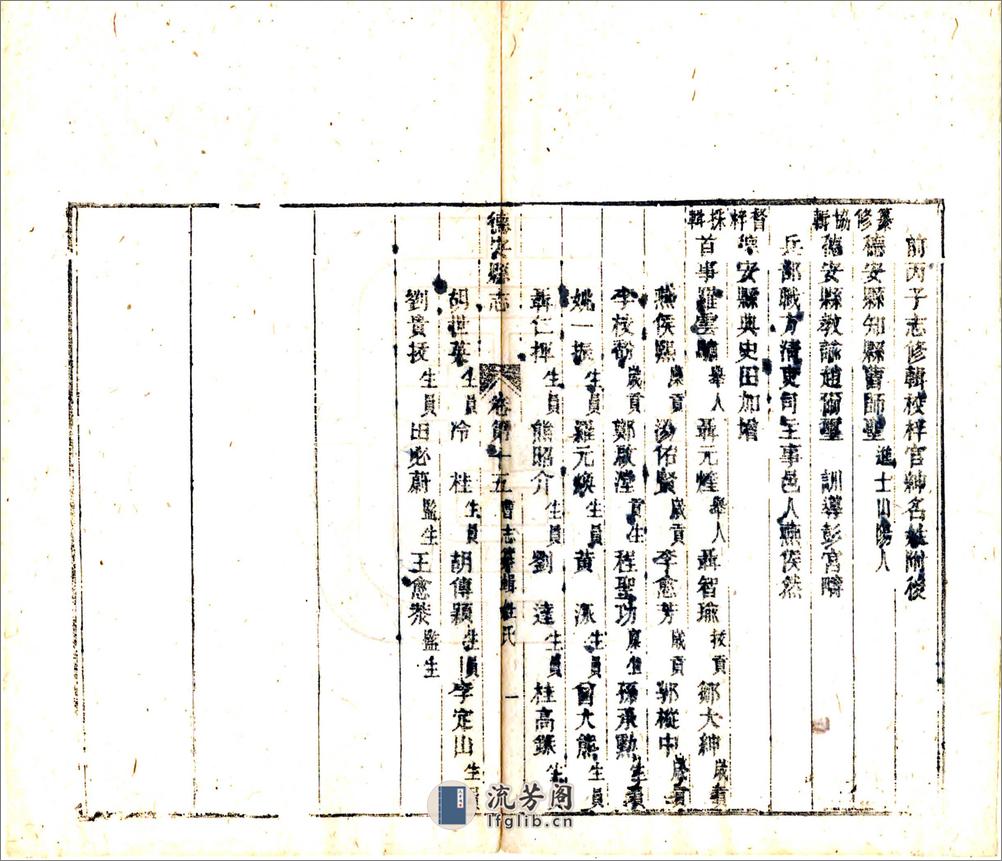 前丙子志修輯校梓官紳名姓附後
纂修
德安縣知縣曹師聖 進士山陽人
協輯
德安縣教諭趙爾璽 訓導彭宮疇
兵部職方清吏司主事邑人燕侯然
督梓
德安縣典史田加增
採輯
首事羅雲 舉人 聶元煌 舉人 聶智瑜 拔貢 鄒大紳 歲貢
燕侯熙 廩貢 佑賢 歲貢 李愈芳 歲貢 郭樅中 歲貢
李枝 歲貢 鄭啟瀅 貢生 程聖功 廩生 孫承勳 生員
姚一振 生員 羅元煥 生員 黃 生員 曾大熊 生員
聶仁揮 生員 熊昭介 生員 劉 達 生員 桂高 生員
德安縣志 卷第十五 曹志纂輯姓氏 一
胡世英 生員 冷 桂 生員 胡傳穎 生員 李定山 生員
劉貴拔 生員 田必蔚 監生 王愈 監生
流芳閣
lfglib.cn